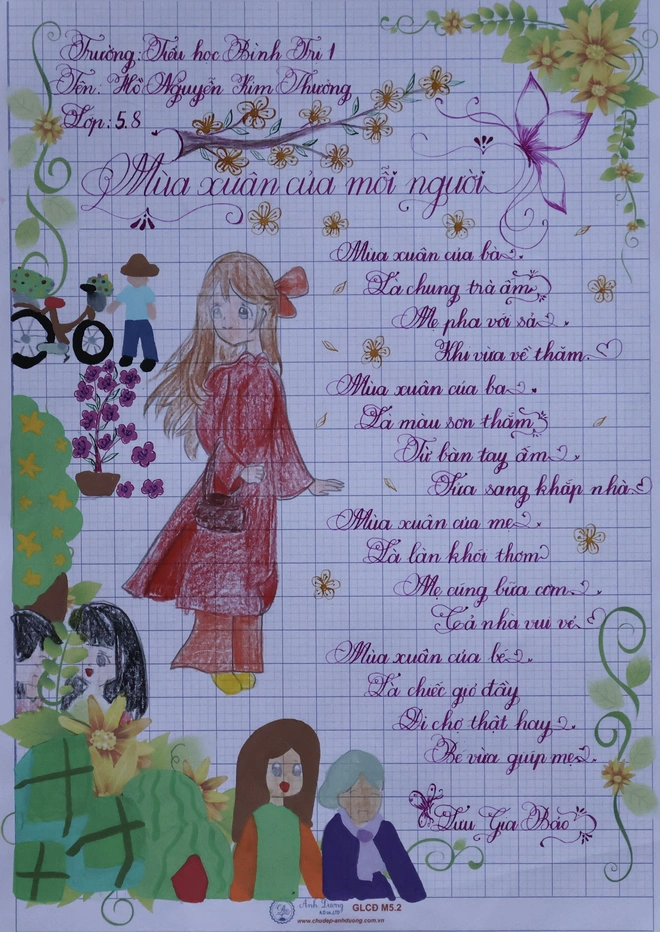 Trường: Tiểu học Bình Trị 1
Tên: Hồ Nguyễn Kim Thương
Lớp: 5.8
Mùa xuân của mỗi người
Mùa xuân của bà
Là chung trà ấm
Mẹ pha với sả
Khi vừa về thăm.
Mùa xuân của ba
Là màu sơn thắm
Từ bàn tay ấm
Sửa sang khắp nhà
Mùa xuân của mẹ
Là làn khói thơm
Mẹ cúng bữa cơm
Cả nhà vui vẻ
Mùa xuân của bé
Là chiếc giỏ đầy
Đi chợ thật hay
Bé vừa giúp mẹ.
Lưu Gia Bảo
Ánh Dương GLCĐ M5.2
www.chudep-anhduong.com.vn